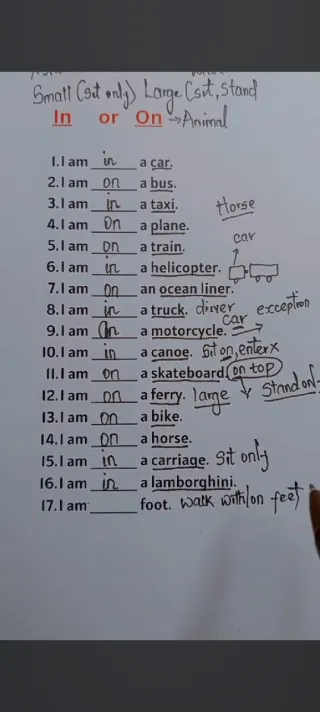 Small (sit only) Large (sit, stand
In or On → Animal
1. I am in a car.
2. I am on a bus.
3. I am in a taxi. Horse
4. I am on a plane.
5. I am on a train. car
6. I am in a helicopter.
7. I am on an ocean liner.
8. I am in a truck. driver exception
9. I am on a motorcycle. car
10. I am in a canoe. Sit on, enter x
11. I am on a skateboard (on top)
12. I am on a ferry. large Stand on
13. I am on a bike.
14. I am on a horse.
15. I am in a carriage. Sit only
16. I am in a lamborghini.
17. I am ______ foot. walk with/on feet